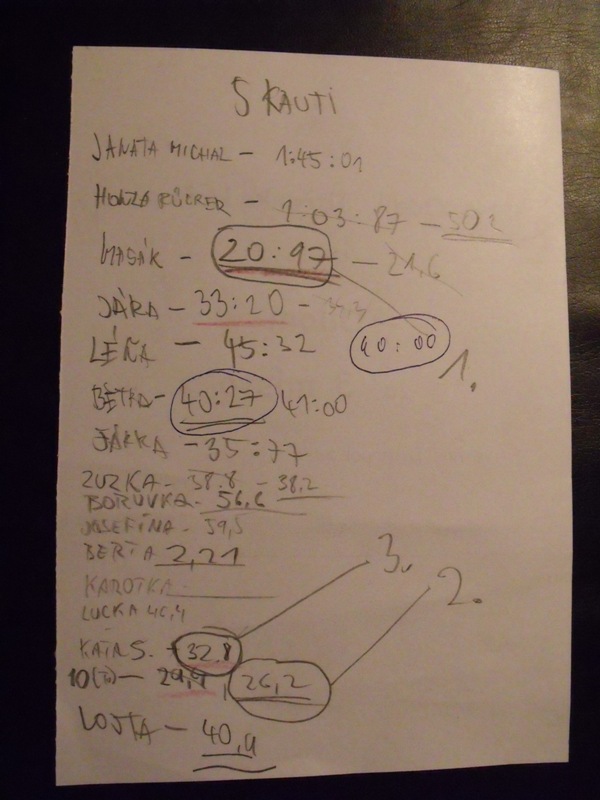 SKAUTI
JANATA MICHAL - 1:45:01
HONZA - 1:03:87 - 50
MASÁK - 20:97 - 21,6
JÁRA - 33:20
LÉŇA - 45:32 40:00 1.
BĚTKA - 40:27 41:00
JÁRKA - 35:77
ZUZKA - 38.8 - 38,2
BORŮVKA - 56,6
JOSEFÍNA - 39,5
BERTA 2,21
KAROTKA
LUCKA 46,4
3.
2.
KÁŤA S. - 32,8
29,9 26,2
LOJTA - 40,9